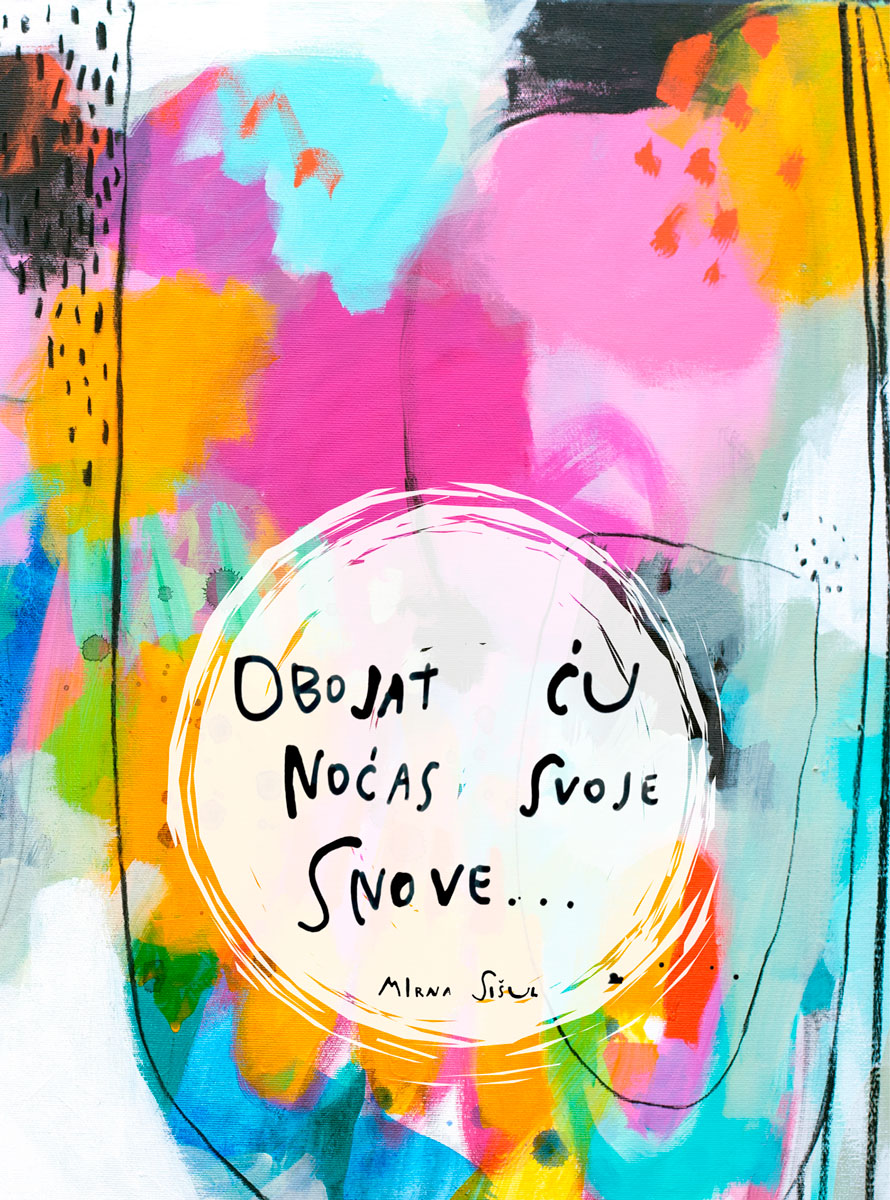 OBOJAT ĆU
NOĆAS SVOJE
SNOVE...
MIRNA SIŠUL